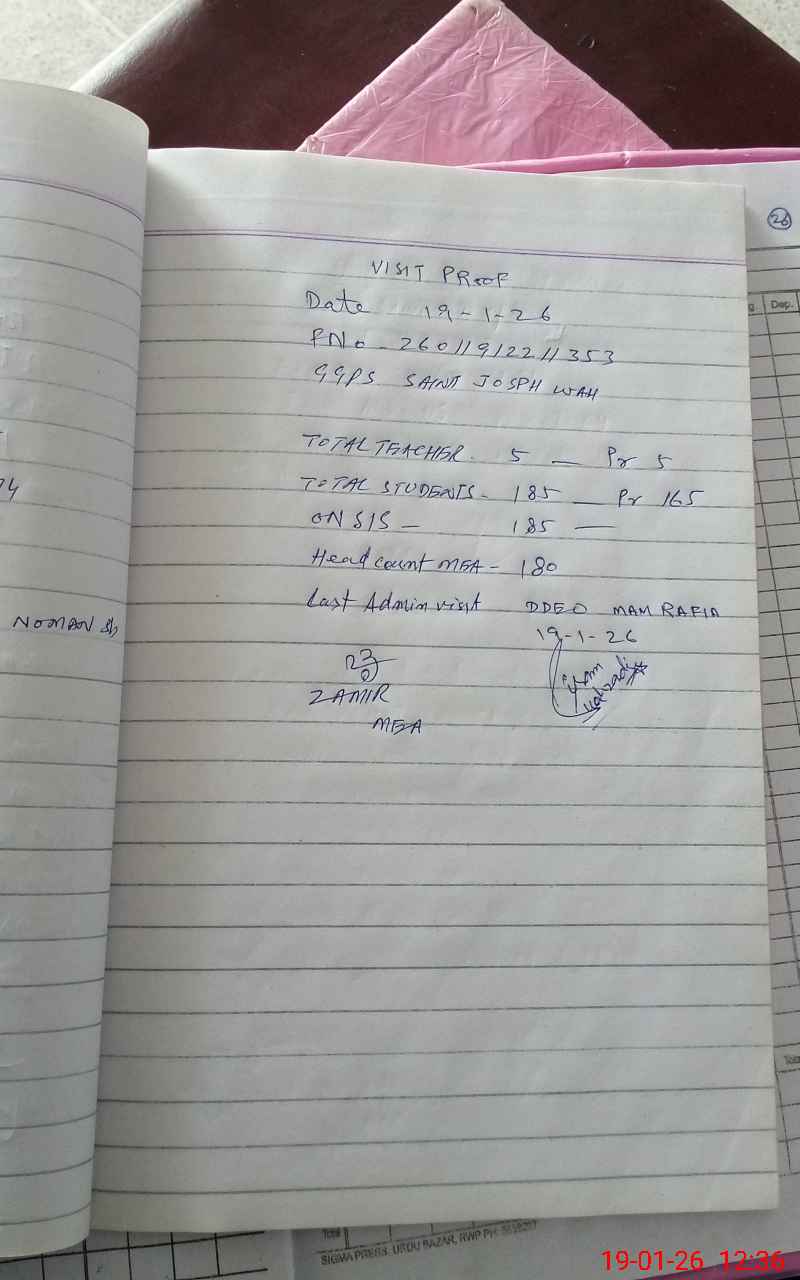 VISIT PROOF
Date 19-1-26
PNo - 26011912211353
GGPS SAINT JOSPH WAH
TOTAL TEACHER. 5 — Pr 5
TOTAL STUDENTS - 185 — Pr 165
ON SIS — 185 —
Head count MEA - 180
Last Admin visit DDEO MAM RAFIA
19-1-26
ZAMIR
MEA
NOMAN Sb
26
Dep.
Total
SIGMA PRESS, URDU BAZAR, RWP PH:
19-01-26 12:36